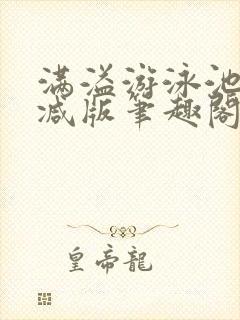 满溢游泳池
减版笔趣阁
皇帝龍